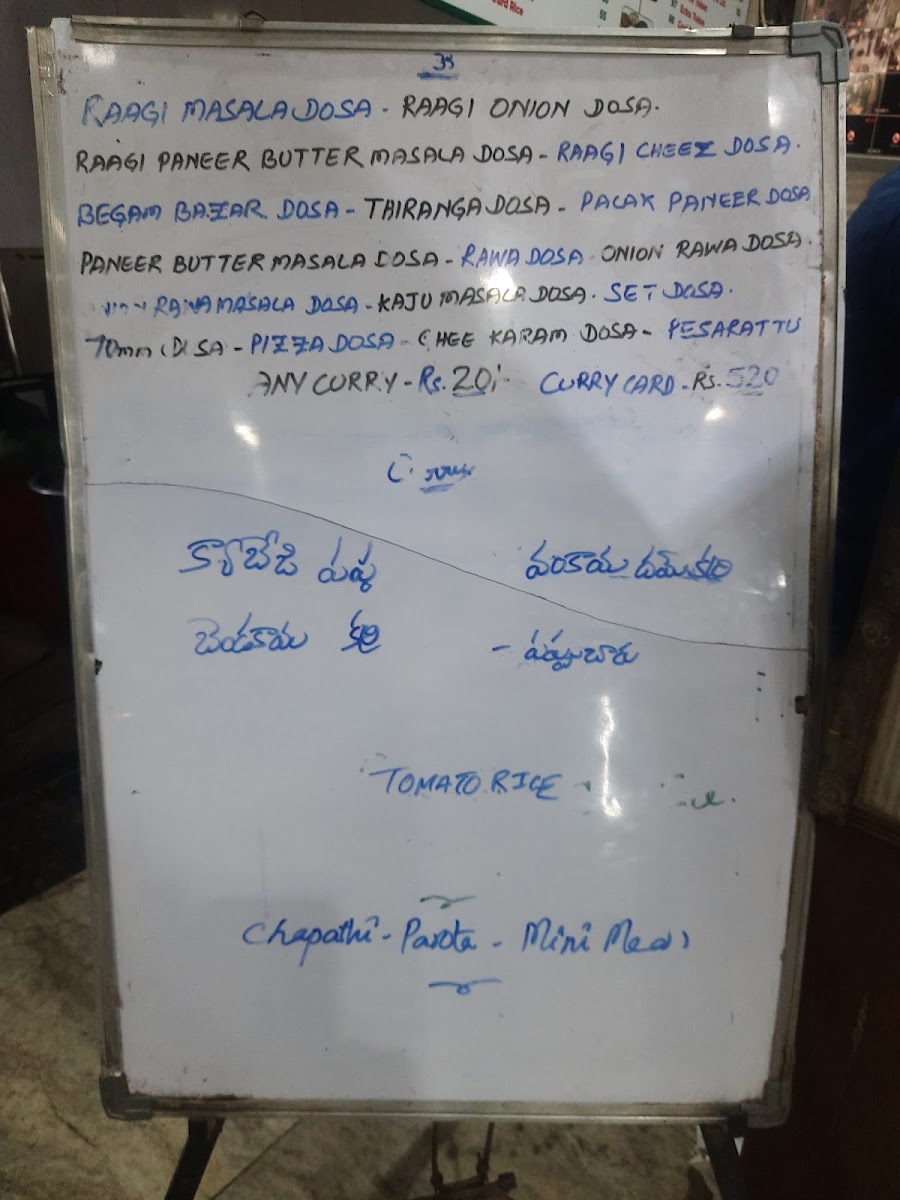 ఓం
RAAGI MASALA DOSA - RAAGI ONION DOSA.
RAAGI PANEER BUTTER MASALA DOSA - RAAGI CHEEZ DOSA.
BEGAM BAZAR DOSA - THIRANGA DOSA - PALAK PANEER DOSA
PANEER BUTTER MASALA DOSA - RAWA DOSA - ONION RAWA DOSA.
RAWA MASALA DOSA - KAJU MASALA DOSA. SET DOSA.
70mm DOSA - PIZZA DOSA - GHEE KARAM DOSA - PESARATTU
ANY CURRY - Rs. 20/- CURRY CARD - Rs. 520
క్యాబేజి పప్పు వంకాయ దమ్ కర్రి
బెండకాయ కర్రి - పప్పుచారు
TOMATO RICE
Chapathi - Parota - Mini Meals